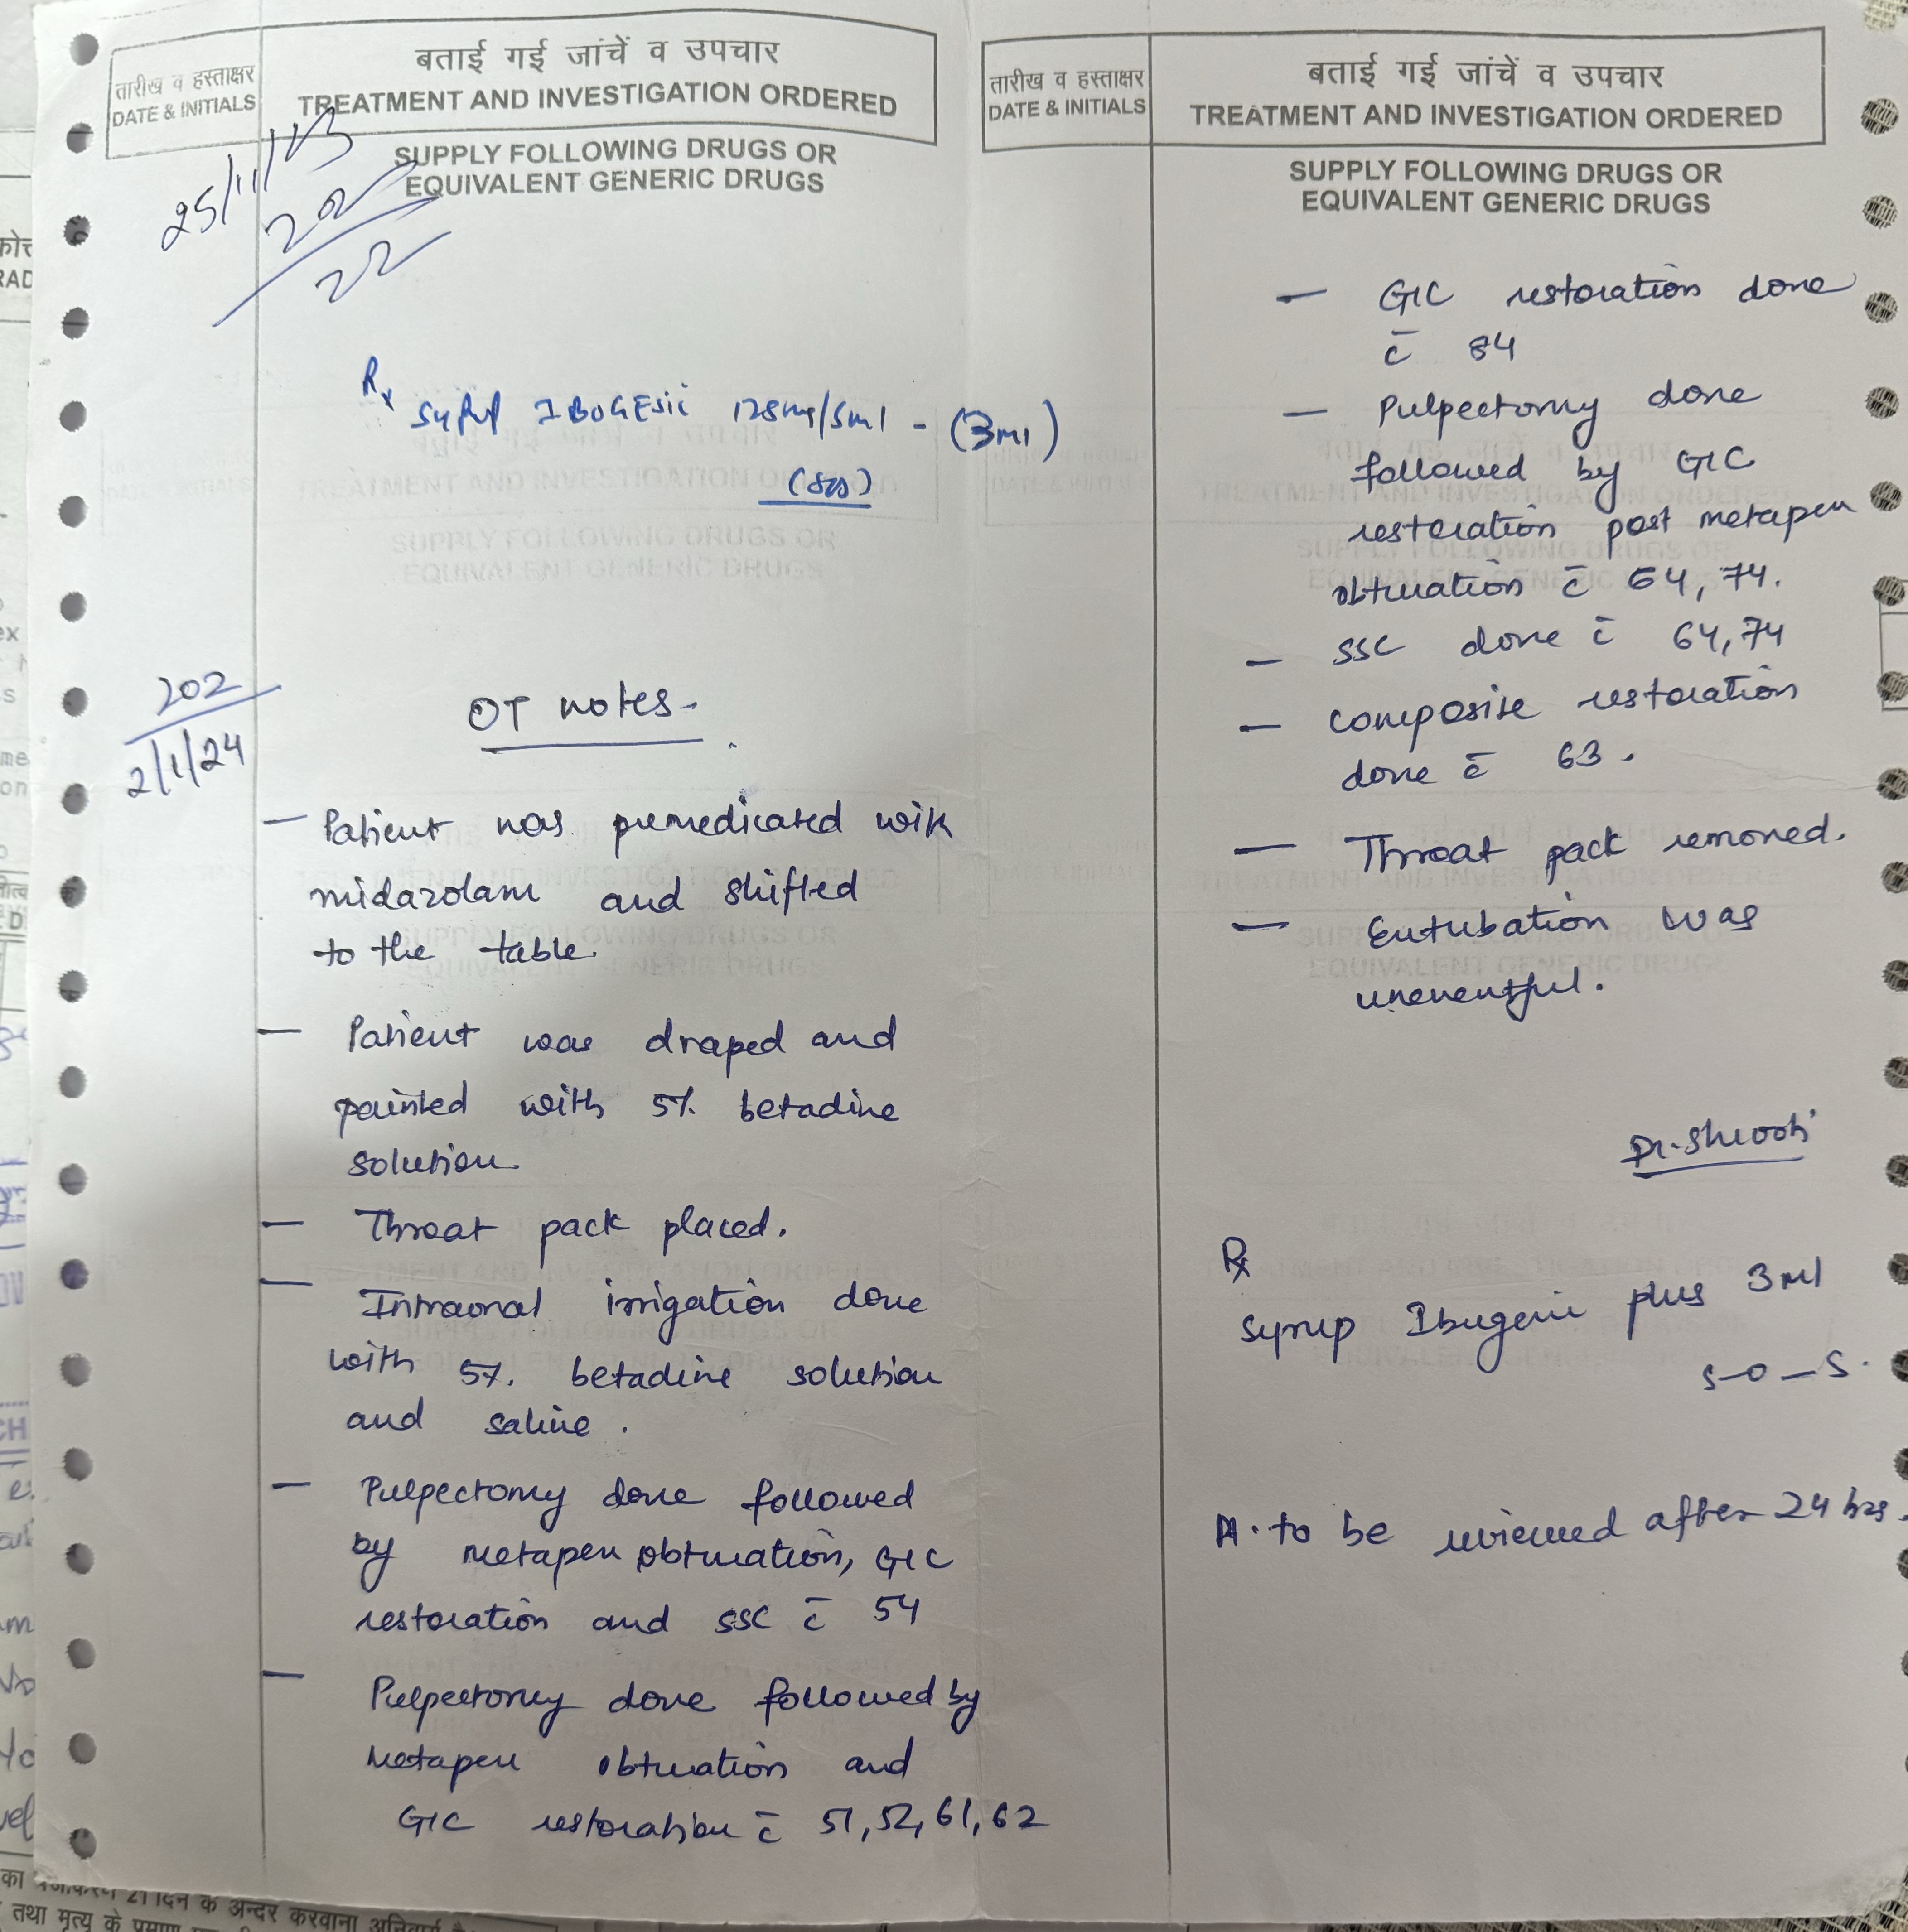 तारीख व हस्ताक्षर
DATE & INITIALS
बताई गई जांचें व उपचार
TREATMENT AND INVESTIGATION ORDERED
SUPPLY FOLLOWING DRUGS OR
EQUIVALENT GENERIC DRUGS
25/11/23
202
22
Rx
Syrup IBUGESIC 125mg/5ml - (3ml)
(SOS)
202
2/1/24
OT notes.
- Patient was premedicated with
midazolam and shifted
to the table.
- Patient was draped and
painted with 5% betadine
solution.
- Throat pack placed.
- Intraoral irrigation done
with 5%. betadine solution
and saline.
- Pulpectomy done followed
by metapex obturation, GIC
restoration and SSC c̄ 54
- Pulpectomy done followed by
Metapex obturation and
GIC restoration c̄ 51, 52, 61, 62
तारीख व हस्ताक्षर
DATE & INITIALS
बताई गई जांचें व उपचार
TREATMENT AND INVESTIGATION ORDERED
SUPPLY FOLLOWING DRUGS OR
EQUIVALENT GENERIC DRUGS
- GIC restoration done
c̄ 84
- Pulpectomy done
followed by GIC
restoration post metapex
obturation c̄ 64, 74.
- SSC done c̄ 64, 74
- Composite restoration
done c̄ 63.
- Throat pack removed.
- Extubation was
uneventful.
Dr.
Rx
Syrup Ibugesic plus 3ml
S-O-S.
to be reviewed after 24 hrs.
का पंजीकरण 21 दिन के अन्दर करवाना अनिवार्य
तथा मृत्यु के प्रमाण